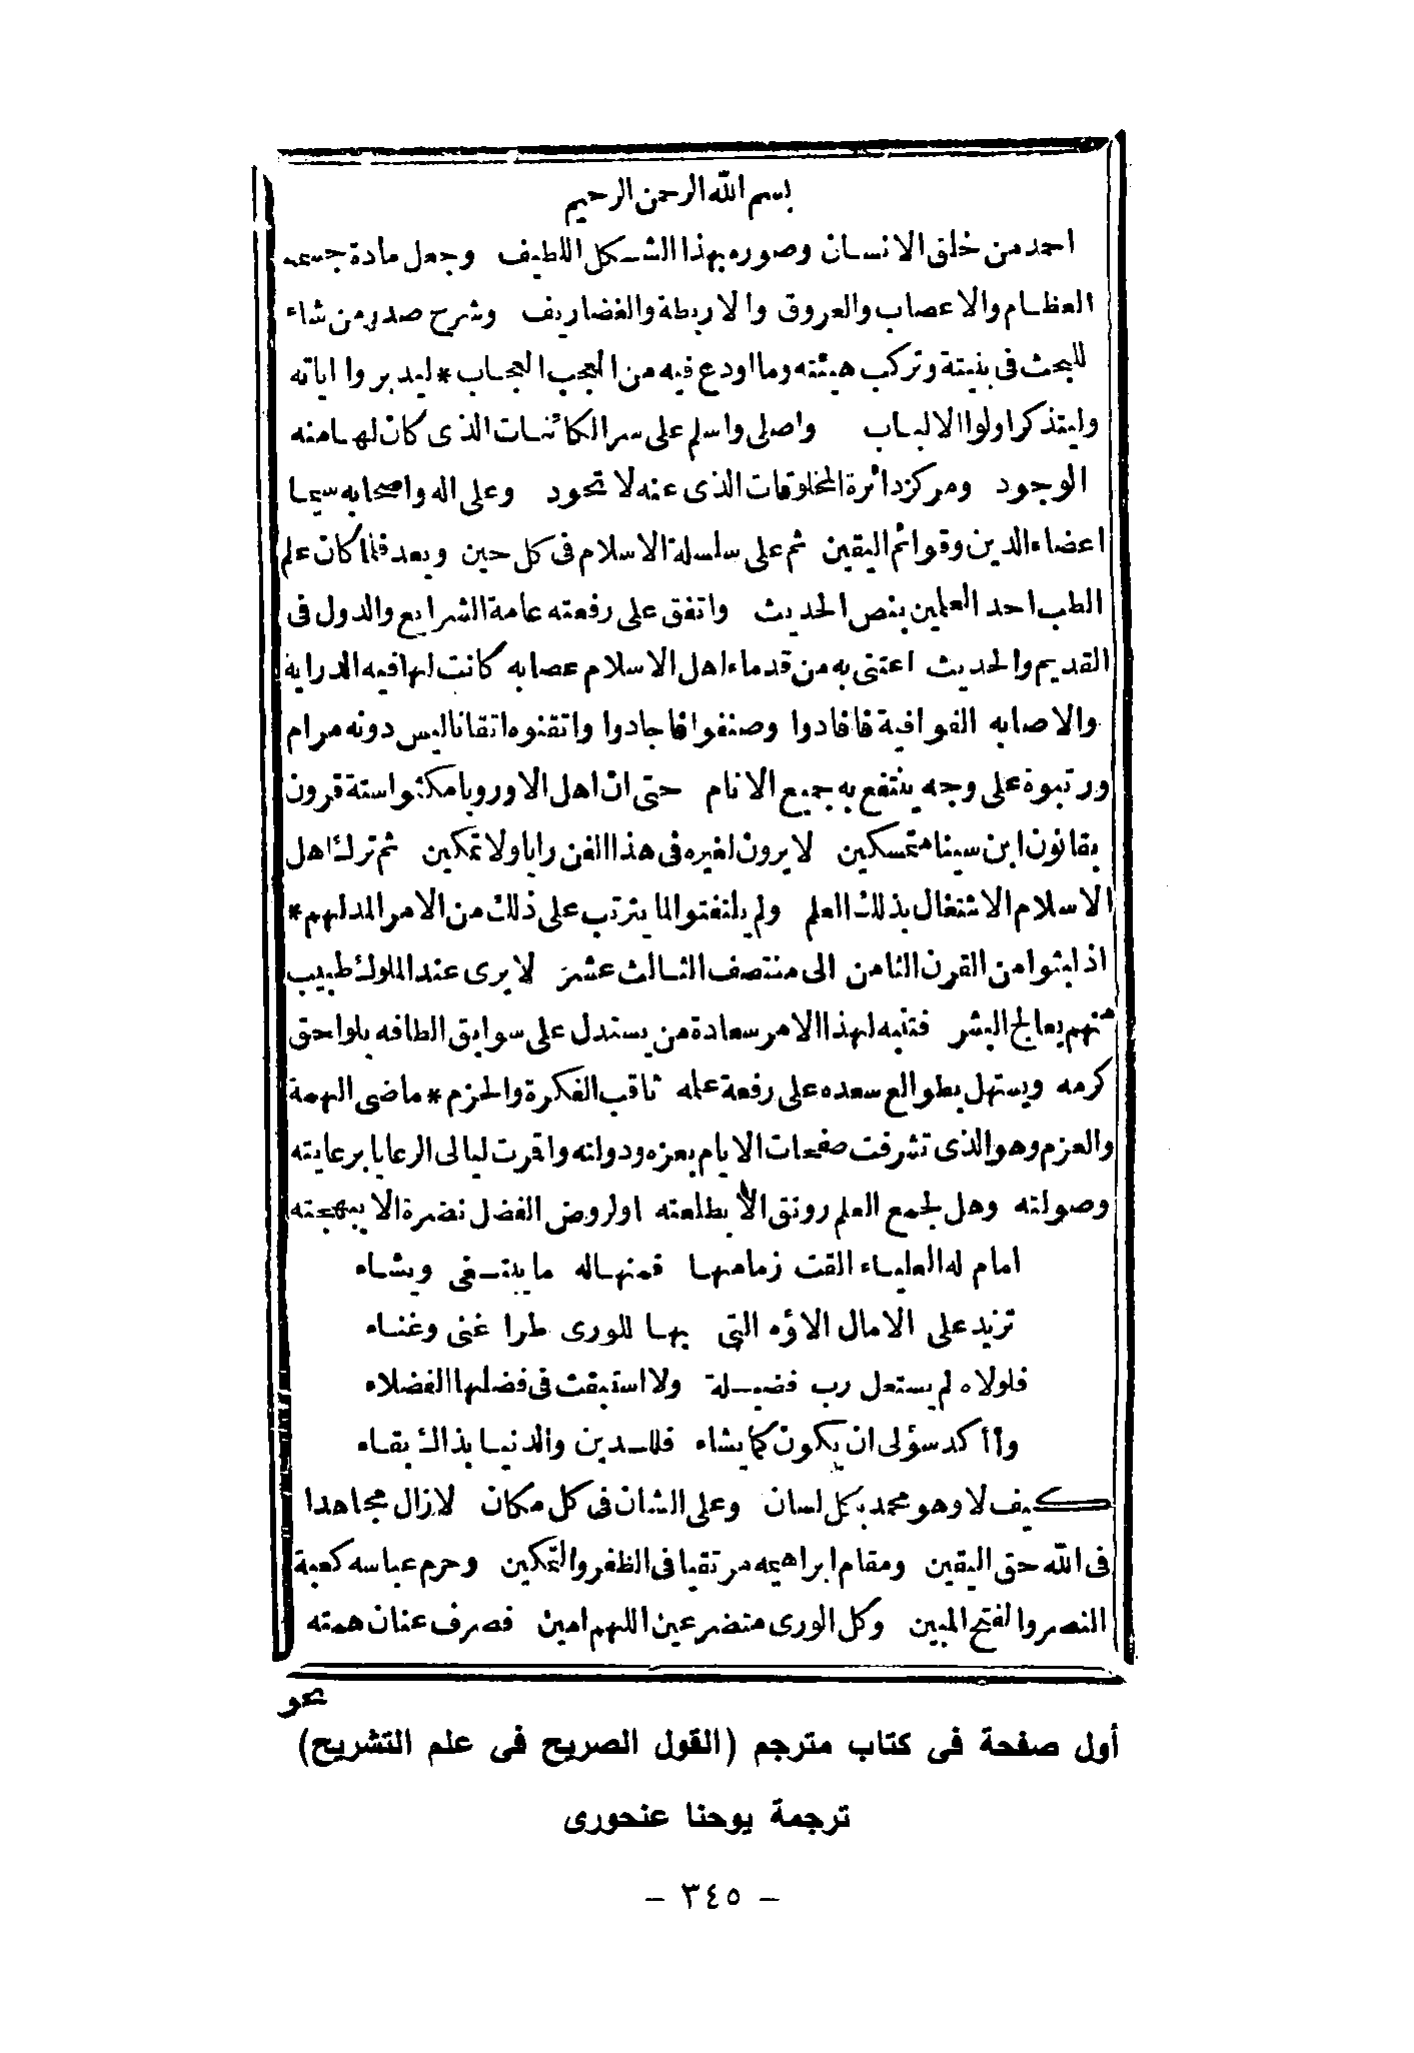 بسم الله الرحمن الرحيم
احمد من خلق الانسان وصوره بهذا الشكل اللطيف وجعل مادة جسمه
العظام والاعصاب والعروق والاربطة والغضاريف وشرح صدر من شاء
للبحث فى بنيتة وتركب هيئته وما اودع فيه من العجب العجاب * ليدبروا اياته
وليتذكر اولوا الالباب واصلى واسلم على سر الكائنات الذى كان لها منه
الوجود ومركز دائرة المخلوقات الذى عنه لا تحود وعلى اله واصحابه سيما
اعضاء الدين وقوائم اليقين ثم على سلسلة الاسلام فى كل حين وبعد فلما كان علم
الطب احد العلمين بنص الحديث واتفق على رفعته عامة الشرايع والدول فى
القديم والحديث اعتنى به من قدماء اهل الاسلام عصابه كانت لها فيه الدراية
والاصابه الفوا فية فافادوا وصنفوا فاجادوا واتقنوه اتقانا ليس دونه مرام
ورتبوة على وجه ينتفع به جميع الانام حتى ان اهل الاوروبا مكثوا ستة قرون
بقانون ابن سينا متمسكين لا يرون لغيره فى هذا الفن رايا ولا تمكين ثم ترك اهل
الاسلام الاشتغال بذلك العلم ولم يلتفتوا لما يترتب على ذلك من الامر المدلهم *
اذ لبثوا من القرن الثامن الى منتصف الثالث عشر لا يرى عند الملوك طبيب
منهم يعالج البشر فتنبه لهذا الامر سعادة من يستدل على سوابق الطافه بلواحق
كرمه ويستهل بطوالع سعده على رفعة علمه ثاقب الفكرة والحزم * ماضى الهمة
والعزم وهو الذى تشرفت صفحات الايام بعزه ودولته واقرت ليالى الرعايا برعايته
وصولته وهل لجمع العلم رونق الا بطلعته او لروض الفضل نضرة الا ببهجته
امام له العلياء القت زمامها فمنها له ما يبتغى ويشاء
تزيد على الامال الاؤه التى بها للورى طرا غنى وغناء
فلولاه لم يستعل رب فضيلة ولا استبقت فى فضلها الفضلاء
وأاكد سؤلى ان يكون كما يشاء فللدين والدنيا بذاك بقاء
كيف لا وهو محمد بكل لسان وعلى الشان فى كل مكان لا زال مجاهدا
فى الله حق اليقين ومقام ابراهيمه مرتقيا فى الظفر والتمكين وحرم عباسه كعبة
النصر والفتح المبين وكل الورى متضرعين اللهم امين فصرف عنان همته
نحو
أول صفحة فى كتاب مترجم (القول الصريح فى علم التشريح)
ترجمة يوحنا عنحورى
- ٣٤٥ -